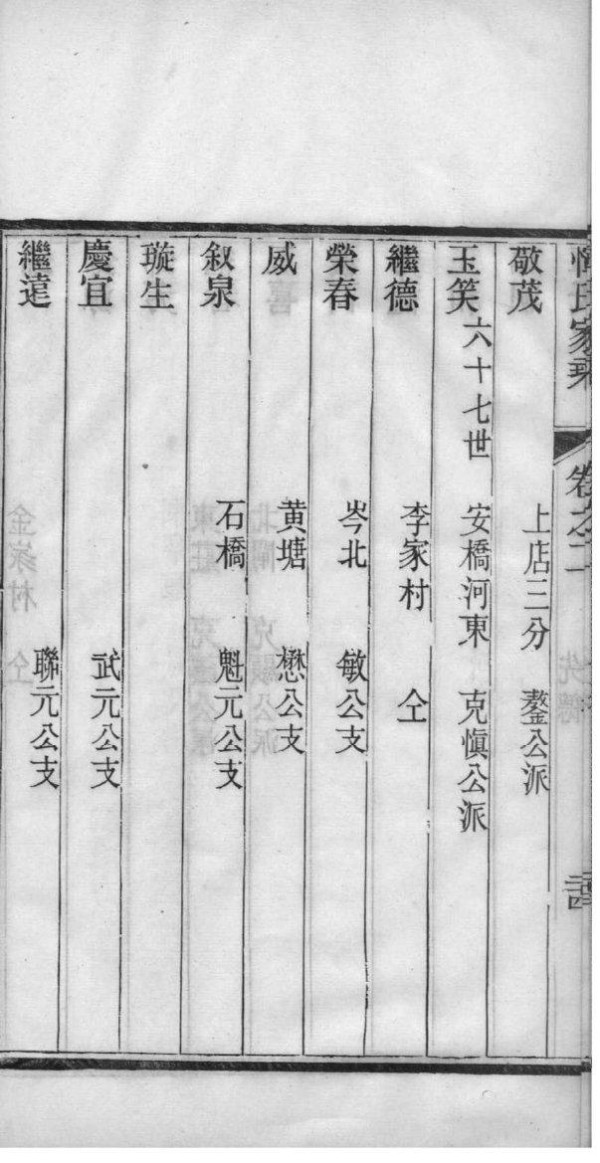 惲氏家乘 卷之二
敬茂 上店三分 鏊公派
玉笑 六十七世 安橋河東 克慎公派
繼德 李家村 仝
榮春 岑北 敏公支
威 黄塘 懋公支
叙泉 石橋 魁元公支
璇生
慶宜 武元公支
繼遠 聯元公支